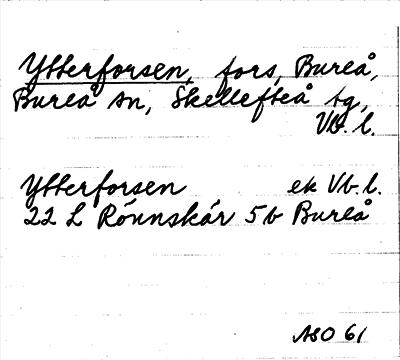 Ytterforsen, fors, Bureå,
Bureå sn, Skellefteå tg,
Vb. l.
Ytterforsen ek Vb. l.
22 L Rönnskär 5b Bureå
ASO 61